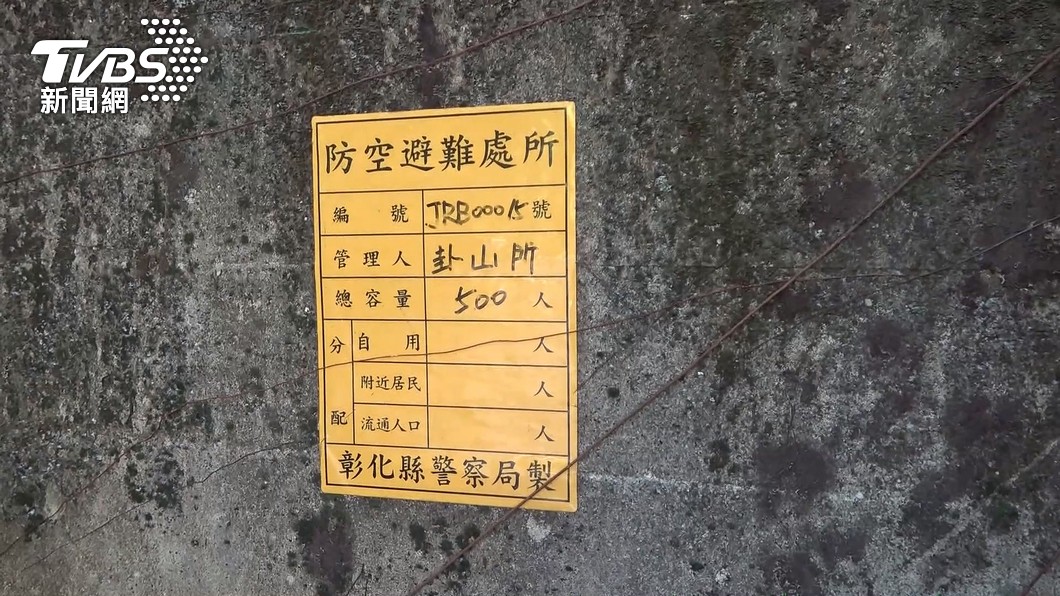 TVBS
新聞網
防空避難處所
編號 JRB00015號
管理人 卦山所
總容量 500人
分配 自用 人
附近居民 人
流通人口 人
彰化縣警察局製